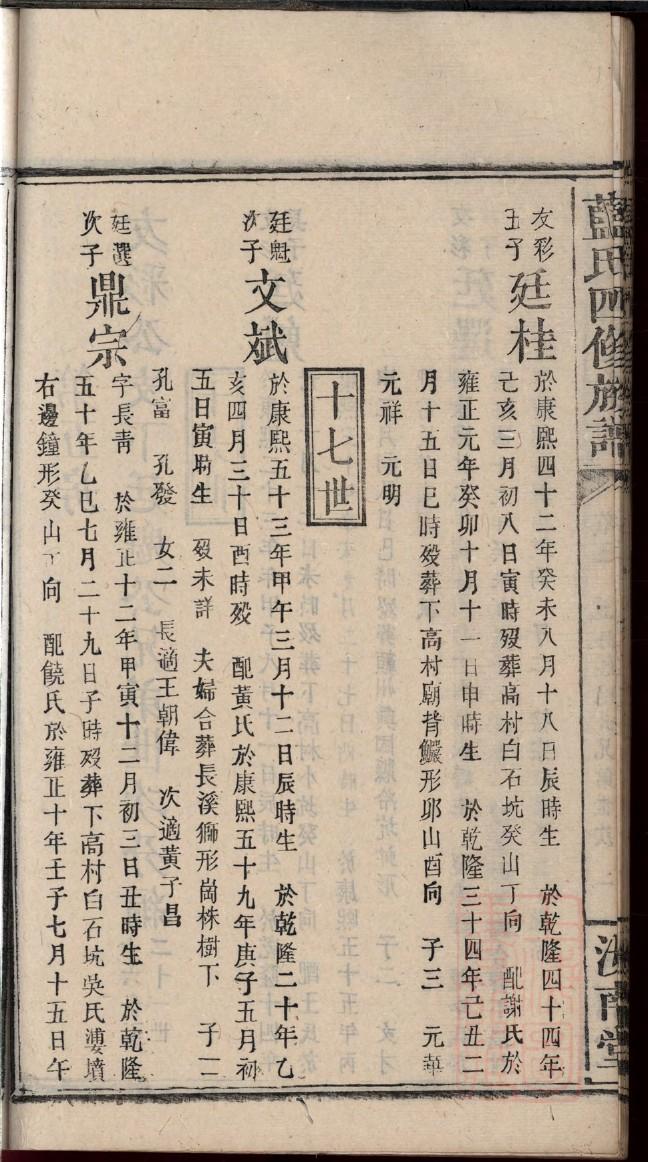 藍氏四修族譜
汝南堂
友彩
五子
廷桂
於康熙四十二年癸未八月十八日辰時生　於乾隆四十四年
己亥三月初八日寅時歿葬高村白石坑癸山丁向　配謝氏於
雍正元年癸卯十月十一日申時生　於乾隆三十四年己丑二
月十五日巳時歿葬下高村廟背鱟形卯山酉向　子三　元華
元祥　元明
十七世
廷魁
次子
文斌
於康熙五十三年甲午三月十二日辰時生　於乾隆二十年乙
亥四月三十日酉時歿　配黃氏於康熙五十九年庚子五月初
五日寅時生　歿未詳　夫婦合葬長溪獅形崗株樹下　子二
孔富　孔發　女二　長適王朝偉　次適黃子昌
廷選
次子
鼎宗
字長青　於雍正十二年甲寅十二月初三日丑時生　於乾隆
五十年乙巳七月二十九日子時歿葬下高村白石坑吳氏墳
右邊鐘形癸山丁向　配饒氏於雍正十年壬子七月十五日午